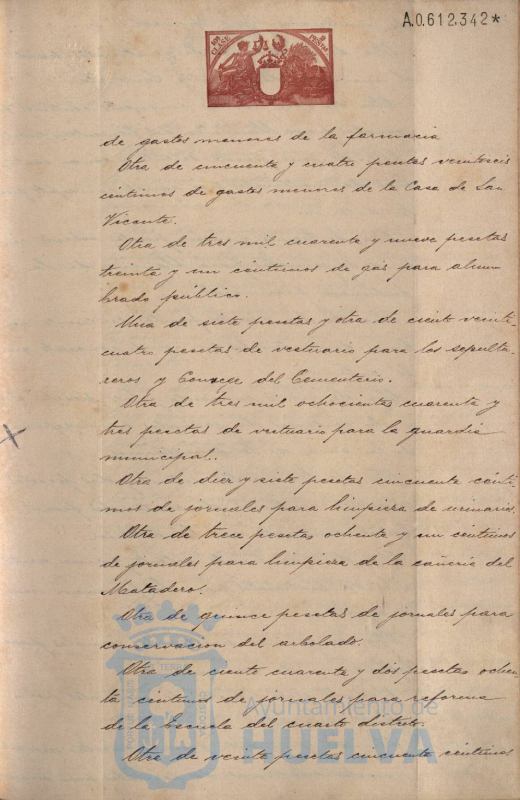 A.0.612.342*
10ª CLASE
PESETAS
de gastos menores de la farmacia
Otra de cincuenta y cuatro pesetas veintiseis
centimos de gastos menores de la Casa de San
Vicente.
Otra de tres mil cuarenta y nueve pesetas
treinta y un centimos de gas para alum-
brado público.
Una de siete pesetas y otra de ciento veinte-
cuatro pesetas de vestuario para los sepultu-
reros y Conserge del Cementerio.
Otra de tres mil ochocientas cuarenta y
tres pesetas de vestuario para la guardia
municipal.
Otra de diez y siete pesetas cincuenta cénti-
mos de jornales para limpieza de urinarios.
Otra de trece pesetas ochenta y un centimos
de jornales para limpieza de la cañeria del
Matadero.
Otra de quince pesetas de jornales para
conservacion del arbolado.
Otra de ciento cuarenta y dos pesetas ochen-
ta centimos de jornales para reforma
de la Escuela del cuarto distrito.
Otra de veinte pesetas cincuenta centimos
Ayuntamiento de
HUELVA